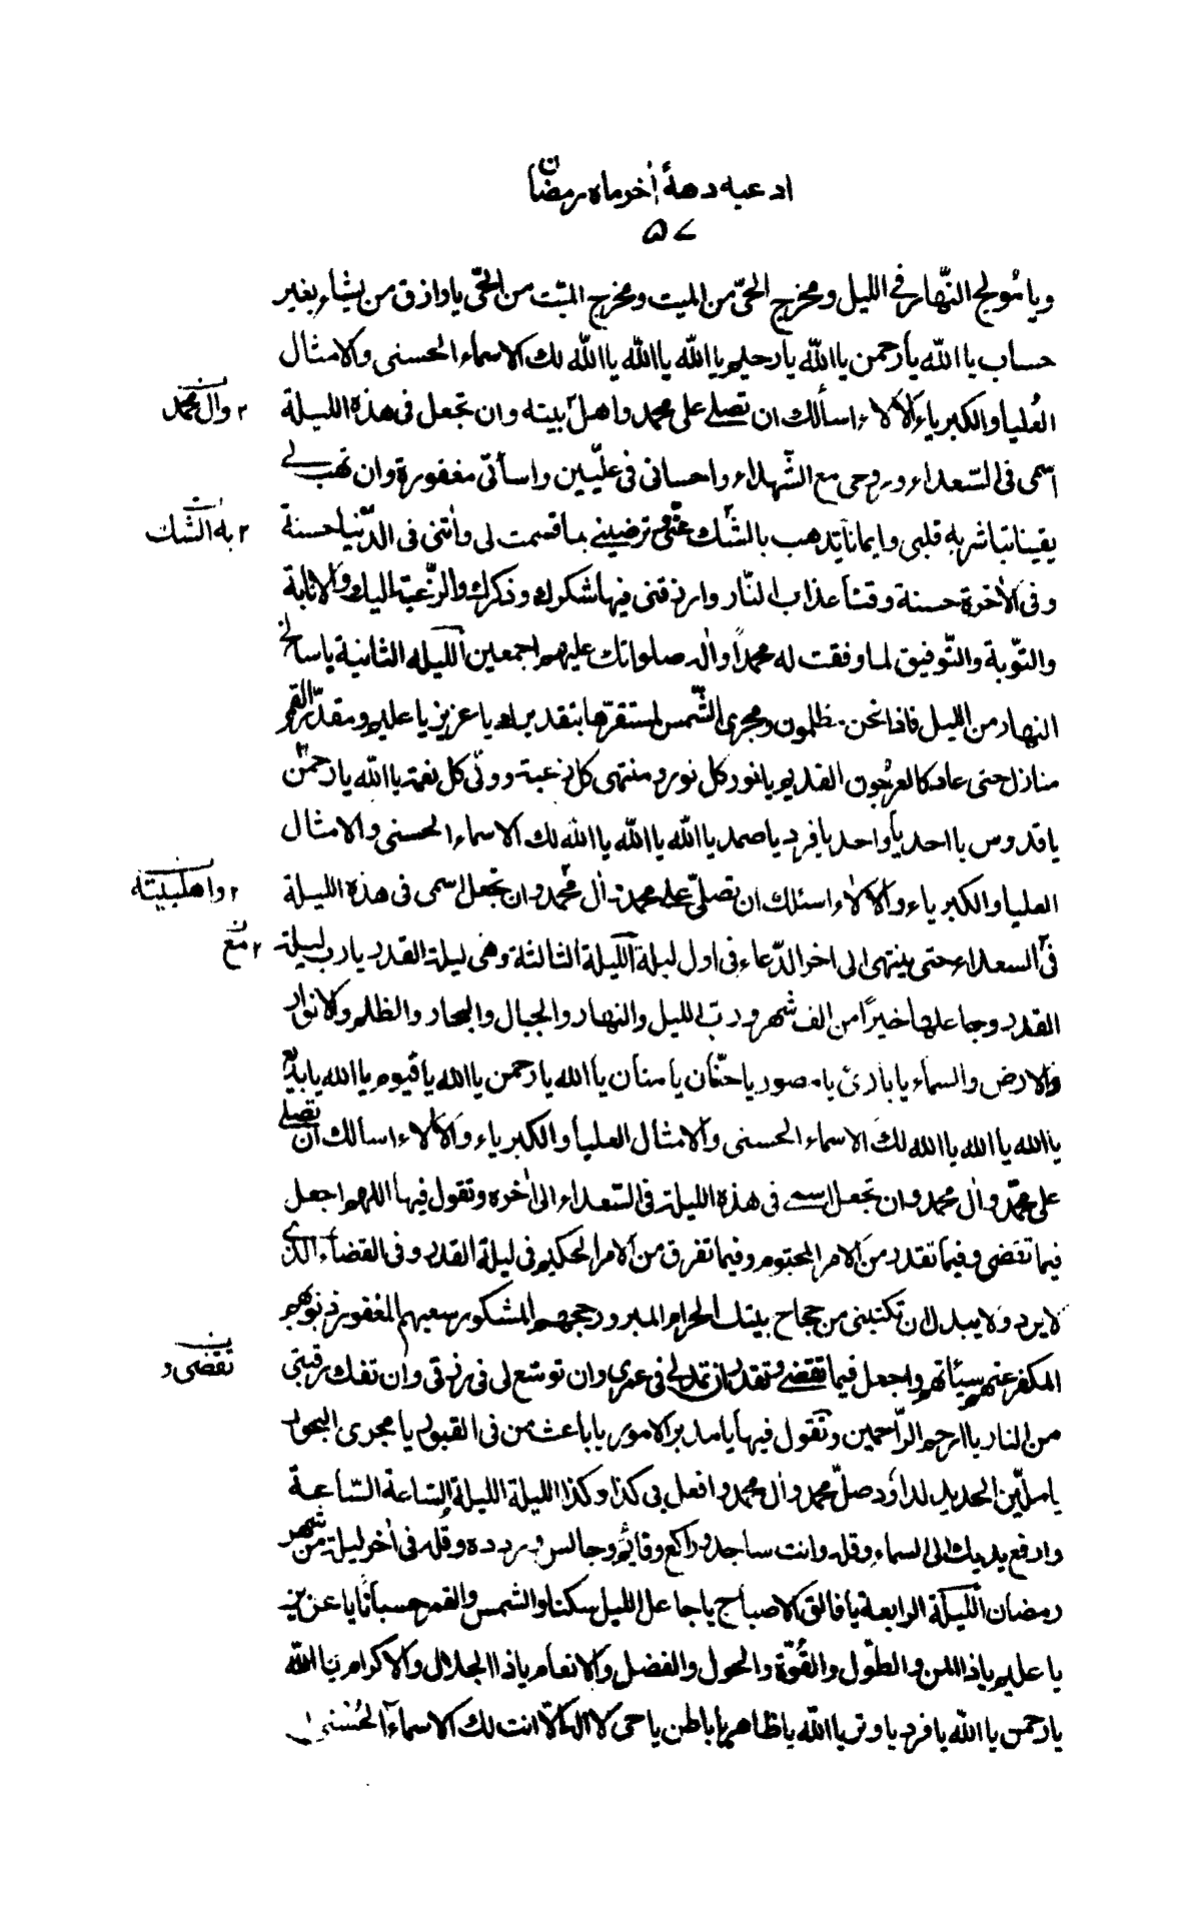 ادعيه دههٔ اٰخر ماه رمضان
۵۷
ويا مُولج النّهار فى الليل ومخرج الحىّ من الميت ومخرج الميّت من الحىّ يا رازق من يشاء بغير
حساب يا اللّه يا رحمن يا اللّه يا رحيم يا اللّه يا اللّه يا اللّه لك الاسماء الحسنى والامثال
العُليا والكبرياء والالاء اسألك ان تصلى على محمد واهل بيته وان تجعل فى هذه الليلة
٢ وال محمد
اسمى فى السّعداء وروحى مع الشّهداء واحسانى فى عليّين واسأتى مغفورة وان تهب لى
يقينا تباشر به قلبى وايمانا يذهب بالشّك عنّى وترضينى بما قسمت لى واٰتنى فى الدّنيا حسنة
٢ به الشك
وفى الاٰخرة حسنة وقنا عذاب النّار وارزقنى فيها شكرك وذكرك والرّغبة اليك والانابة
والتّوبة والتّوفيق لما وفقت له محمداً واٰله صلواتك عليهم اجمعين الليلة الثانية يا سالخ
النهار من الليل فاذا نحن مظلمون ومجرى الشّمس لمستقرّها بتقديرك يا عزيز يا عليم ومقدّر القمر
منازل حتى عاد كالعرجون القديم يا نور كل نور ومنتهى كل رغبة وولىّ كل نعمة يا اللّه يا رحمن
يا قدوس يا احد يا واحد يا فرد يا صمد يا اللّه يا اللّه يا اللّه لك الاسماء الحسنى والامثال
العليا والكبرياء والالاٰء اسئلك ان تصلّى على محمد واٰل محمد وان تجعل اسمى فى هذه الليلة
٢ واهلبيته
فى السعداء حتى ينتهى الى اخر الدّعاء فى اول ليلة الليلة الثالثة وهى ليلة القدر يا رب ليلة
القدر وجاعلها خيرًا من الف شهر ورب الليل والنهار والجبال والبحار والظلم والانوار
والارض والسماء يا بارئ يا مصور يا حنّان يا منان يا الله يا رحمن يا الله يا قيوم يا الله يا بديع
يا الله يا الله يا الله لك الاسماء الحسنى والامثال العليا والكبرياء والالاء اسألك ان تصلى
على محمّد واٰل محمد وان تجعل اسمى فى هذه الليلة فى السّعداء الى اٰخره وتقول فيها اللهم اجعل
فيما تقضى وفيما تقدر من الامر المحتوم وفيما تفرق من الامر الحكيم فى ليلة القدر وفى القضاء الذى
لا يرد ولا يبدل ان تكتبنى من حجاج بيتك الحرام المبرور حجهم المشكور سعيهم المغفور ذنوبهم
المكفر عنهم سيئاتهم واجعل فيما تقضى وتقدر ان تمد لى فى عمرى وان توسّع لى فى رزقى وان تفك رقبتى
تقضى و
من النار يا ارحم الرّاحمين وتقول فيها يا مدبر الامور يا باعث من فى القبور يا مجرى البحور
يا مليّن الحديد لداود صلّ محمد واٰل محمد وافعل بى كذا وكذا الليلة الليلة السّاعة السّاعة
وارفع يديك الى السماء وقله وانت ساجد وراكع وقائم وجالس وردده وقله فى اٰخر ليلة من شهر
رمضان الليلة الرابعة يا فالق الاصباح يا جاعل الليل سكنا والشمس والقمر حسبانا يا عزيز
يا عليم يا ذا المن والطّول والقُوّة والحول والفضل والانعام يا ذا الجلال والاكرام يا اللّه
يا رحمن يا اللّه يا فرد يا وتر يا اللّه يا ظاهر يا باطن يا حى لا اله الّا انت لك الاسماء الحُسْنى